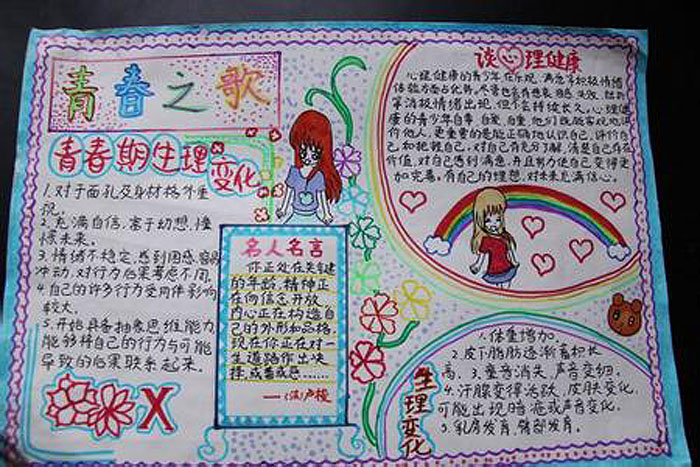 青春之歌
青春期生理变化
1.对于面孔及身材格外重
视。
2.充满自信,富于幻想,憧
憬未来。
3.情绪不稳定,感到困惑,容易
冲动,对行为后果考虑不周。
4.自己的许多行为受同伴影响
较大。
5.开始具备抽象思维能力,
能够将自己的行为与可能
导致的后果联系起来。
X
名人名言
你正处在关键
的年龄,精神正
在向信念开放,
内心正在构造自
己的外形和品格,
现在你正在对一
生道路作出决
择,或善或恶……
——(法)卢梭
谈心理健康
心理健康的青少年在乐观、满意等积极情绪
体验方面占优势。尽管也会有悲哀、困惑、失败、挫折
等消极情绪出现,但不会持续长久。心理健
康的青少年自尊、自爱、自重,他们既能客观地评
价他人,更重要的是能正确地认识自己,评价自
己和把握自己,对自己有充分了解,清楚自己存在
价值,对自己感到满意,并且努力使自己变得更
加完善,有自己的理想,对未来充满信心。
生理变化
1.体重增加。
2.皮下脂肪逐渐蓄积长
高。3.童音消失,声音变细。
4.汗腺变得活跃,皮肤变化,
可能出现暗疮或声音变化。
5.乳房发育,臀部发育。